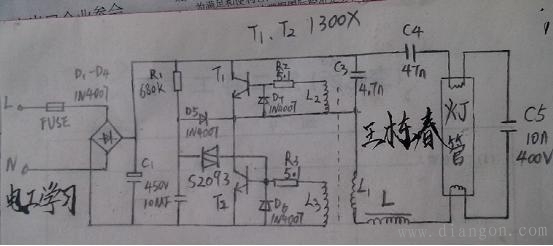 T1、T2 1300X
D1-D4
1N4007
L
FUSE
N
C1
450V
10MF
R1
680K
D5
1N4007
S2093
T1
T2
R2
5.1
D7
1N4007
L2
R3
5.1
D6
1N4007
L3
C3
4.7n
C4
47n
L1
L
灯管
C5
10n
400V
王栋春
电工学习
www.diangon.com